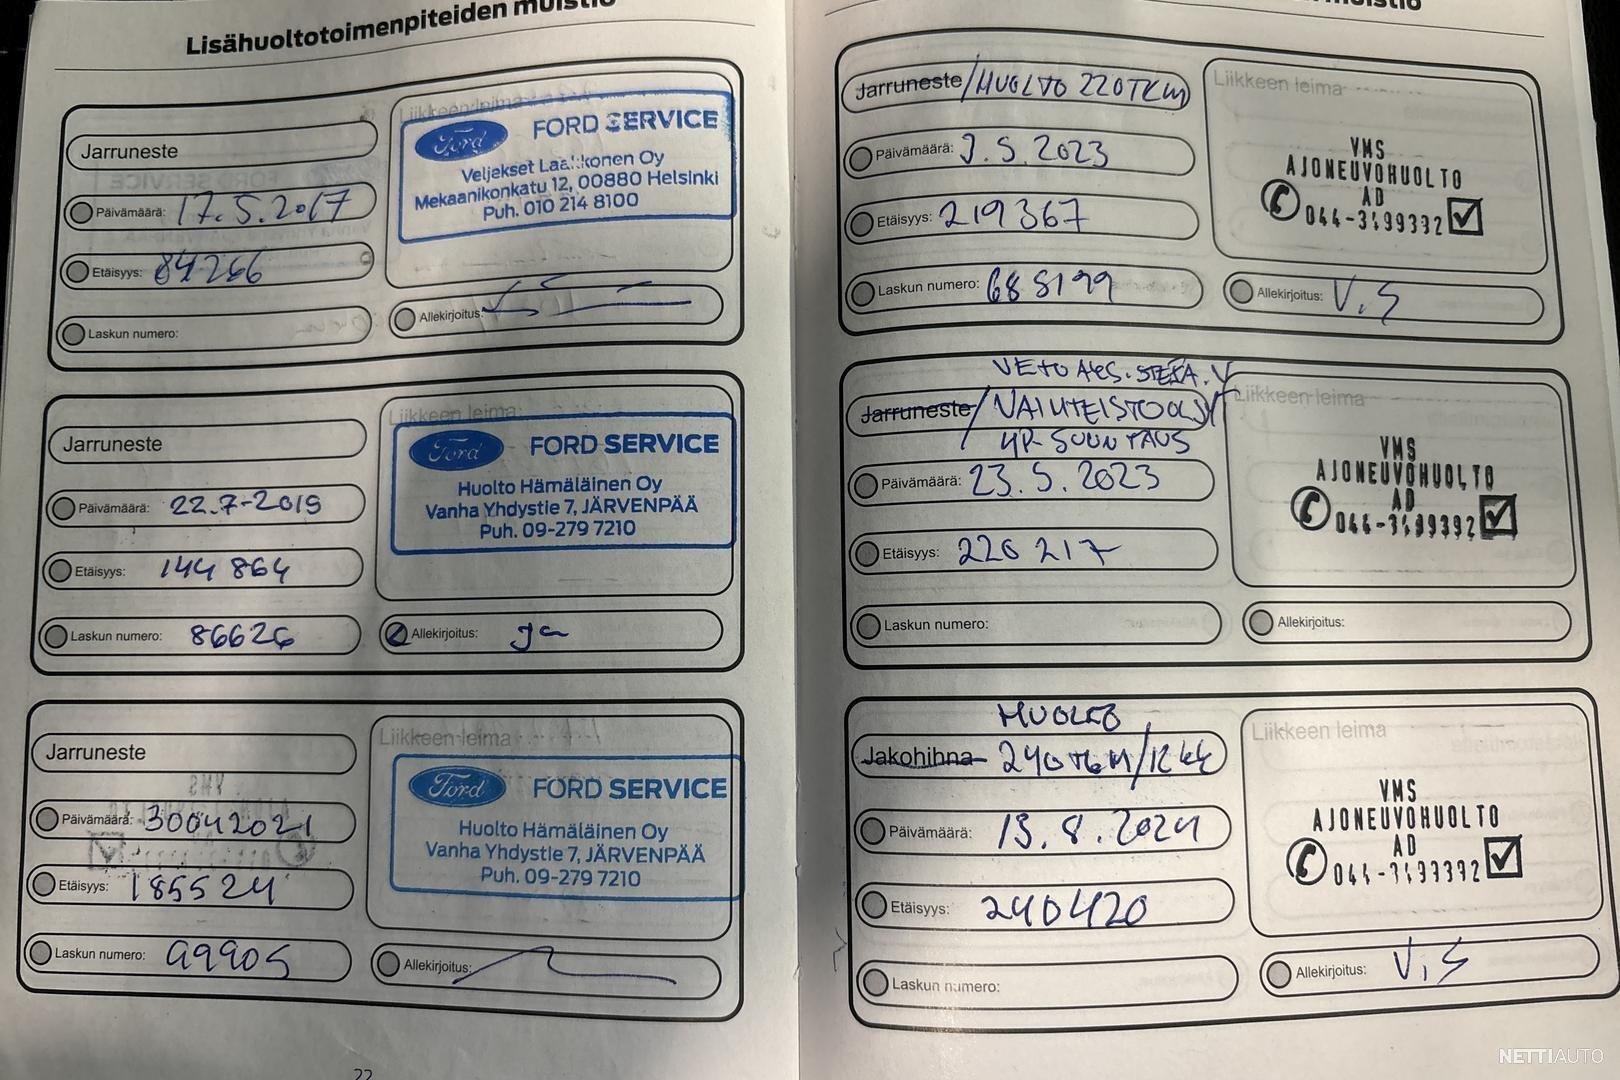 Lisähuoltotoimenpiteiden muistio
Jarruneste
Päivämäärä: 17.5.2017
Etäisyys: 84266
Laskun numero:
Liikkeen leima
Ford FORD SERVICE
Veljekset Laakkonen Oy
Mekaanikonkatu 12, 00880 Helsinki
Puh. 010 214 8100
Allekirjoitus:
Jarruneste
Päivämäärä: 22.7-2019
Etäisyys: 144 864
Laskun numero: 86626
Liikkeen leima:
Ford FORD SERVICE
Huolto Hämäläinen Oy
Vanha Yhdystie 7, JÄRVENPÄÄ
Puh. 09-279 7210
Allekirjoitus:
Jarruneste
Päivämäärä: 30042021
Etäisyys: 185524
Laskun numero: 99905
Liikkeen leima
Ford FORD SERVICE
Huolto Hämäläinen Oy
Vanha Yhdystie 7, JÄRVENPÄÄ
Puh. 09-279 7210
Allekirjoitus:
22
muistio
Jarruneste/HUOLTO 220TKM
Päivämäärä: 9.5.2023
Etäisyys: 219367
Laskun numero: 688199
Liikkeen leima
VMS
AJONEUVOHUOLTO
AD
044-3499392
Allekirjoitus: V.S
VETO
Jarruneste/
4P-SUUNTAUS
Päivämäärä: 23.5.2023
Etäisyys: 220217
Laskun numero:
Liikkeen leima
VMS
AJONEUVOHUOLTO
AD
044-3499392
Allekirjoitus:
HUOLTO
Jakohihna 240TKM/12kk
Päivämäärä: 13.8.2024
Etäisyys: 240420
Laskun numero:
Liikkeen leima
VMS
AJONEUVOHUOLTO
AD
044-3499392
Allekirjoitus: V.S
NETTIAUTO